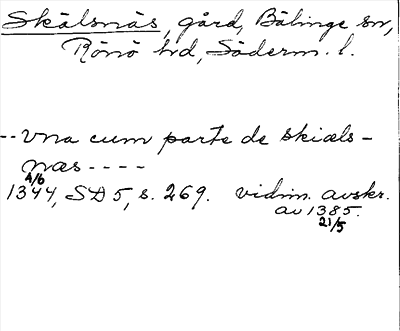 Skälsnäs, gård, Bälinge sn,
Rönö hd, Söderm. l.
-- vna cum parte de skiæls-
næs ----
4/6
1344, SD 5, s. 269. vidim. avskr.
av 1385.
21/5